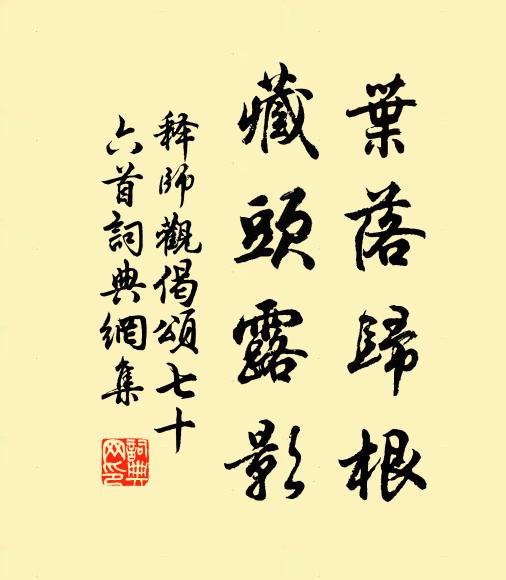 葉落歸根
藏頭露影
释師觀偈頌七十
六首詞典網集
詞典網印